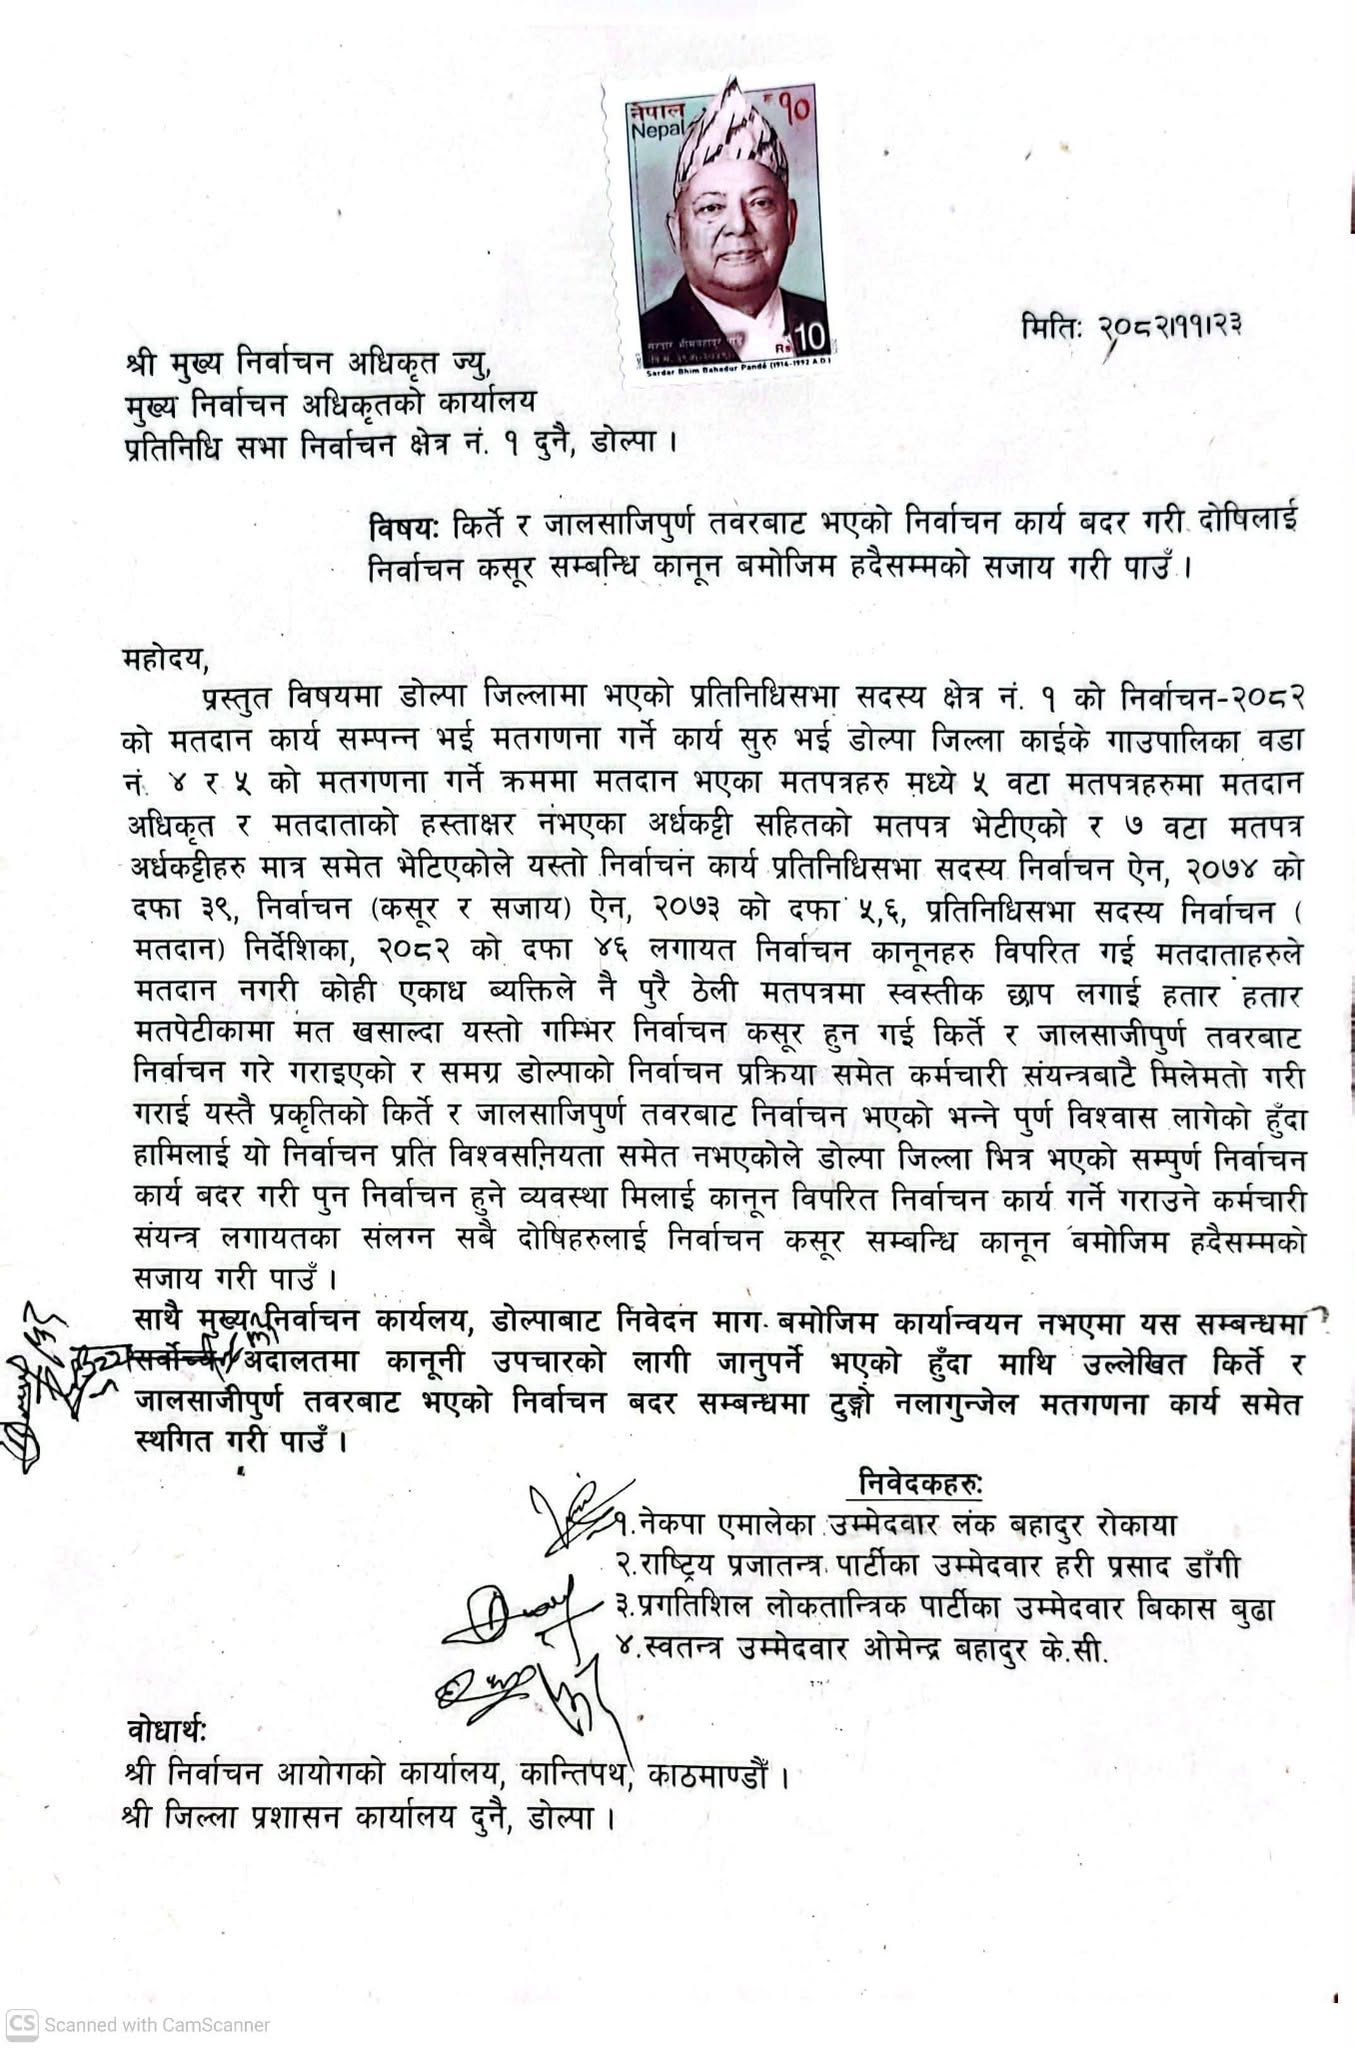 नेपाल
Nepal
₹ १०
Rs 10
Sardar Bhim Bahadur Pandé (1916-1992 A.D.)
मितिः २०८२।११।२३
श्री मुख्य निर्वाचन अधिकृत ज्यु,
मुख्य निर्वाचन अधिकृतको कार्यालय
प्रतिनिधि सभा निर्वाचन क्षेत्र नं. १ दुनै, डोल्पा ।
विषयः किर्ते र जालसाजिपुर्ण तवरबाट भएको निर्वाचन कार्य बदर गरी दोषिलाई
निर्वाचन कसूर सम्बन्धि कानून बमोजिम हदैसम्मको सजाय गरी पाउँ ।
महोदय,
प्रस्तुत विषयमा डोल्पा जिल्लामा भएको प्रतिनिधिसभा सदस्य क्षेत्र नं. १ को निर्वाचन-२०८२
को मतदान कार्य सम्पन्न भई मतगणना गर्ने कार्य सुरु भई डोल्पा जिल्ला काईके गाउपालिका वडा
नं. ४ र ५ को मतगणना गर्ने क्रममा मतदान भएका मतपत्रहरु मध्ये ५ वटा मतपत्रहरुमा मतदान
अधिकृत र मतदाताको हस्ताक्षर नंभएका अर्धकट्टी सहितको मतपत्र भेटीएको र ७ वटा मतपत्र
अर्धकट्टीहरु मात्र समेत भेटिएकोले यस्तो निर्वाचन कार्य प्रतिनिधिसभा सदस्य निर्वाचन ऐन, २०७४ को
दफा ३९, निर्वाचन (कसूर र सजाय) ऐन, २०७३ को दफा ५,६, प्रतिनिधिसभा सदस्य निर्वाचन (
मतदान) निर्देशिका, २०८२ को दफा ४६ लगायत निर्वाचन कानूनहरु विपरित गई मतदाताहरुले
मतदान नगरी कोही एकाध ब्यक्तिले नै पुरै ठेली मतपत्रमा स्वस्तीक छाप लगाई हतार हतार
मतपेटीकामा मत खसाल्दा यस्तो गम्भिर निर्वाचन कसूर हुन गई किर्ते र जालसाजीपुर्ण तवरबाट
निर्वाचन गरे गराइएको र समग्र डोल्पाको निर्वाचन प्रक्रिया समेत कर्मचारी संयन्त्रबाटै मिलेमतो गरी
गराई यस्तै प्रकृतिको किर्ते र जालसाजिपुर्ण तवरबाट निर्वाचन भएको भन्ने पुर्ण विश्वास लागेको हुँदा
हामिलाई यो निर्वाचन प्रति विश्वसनियता समेत नभएकोले डोल्पा जिल्ला भित्र भएको सम्पुर्ण निर्वाचन
कार्य बदर गरी पुन निर्वाचन हुने व्यवस्था मिलाई कानून विपरित निर्वाचन कार्य गर्ने गराउने कर्मचारी
संयन्त्र लगायतका संलग्न सबै दोषिहरुलाई निर्वाचन कसूर सम्बन्धि कानून बमोजिम हदैसम्मको
सजाय गरी पाउँ ।
साथै मुख्य निर्वाचन कार्यलय, डोल्पाबाट निवेदन माग बमोजिम कार्यान्वयन नभएमा यस सम्बन्धमा
सर्वोच्च अदालतमा कानूनी उपचारको लागी जानुपर्ने भएको हुँदा माथि उल्लेखित किर्ते र
जालसाजीपुर्ण तवरबाट भएको निर्वाचन बदर सम्बन्धमा टुङ्गो नलागुन्जेल मतगणना कार्य समेत
स्थगित गरी पाउँ ।
निवेदकहरुः
१.नेकपा एमालेका उम्मेदवार लंक बहादुर रोकाया
२.राष्ट्रिय प्रजातन्त्र पार्टीका उम्मेदवार हरी प्रसाद डाँगी
३.प्रगतिशिल लोकतान्त्रिक पार्टीका उम्मेदवार बिकास बुढा
४.स्वतन्त्र उम्मेदवार ओमेन्द्र बहादुर के.सी.
वोधार्थः
श्री निर्वाचन आयोगको कार्यालय, कान्तिपथ, काठमाण्डौं ।
श्री जिल्ला प्रशासन कार्यालय दुनै, डोल्पा ।
CS Scanned with CamScanner